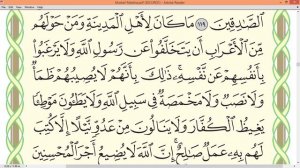 الصَّٰدِقِينَ ١١٩ مَا كَانَ لِأَهْلِ الْمَدِينَةِ وَمَنْ حَوْلَهُم
مِّنَ الْأَعْرَابِ أَن يَتَخَلَّفُوا عَن رَّسُولِ اللَّهِ وَلَا يَرْغَبُوا
بِأَنفُسِهِمْ عَن نَّفْسِهِ ذَٰلِكَ بِأَنَّهُمْ لَا يُصِيبُهُمْ ظَمَأٌ
وَلَا نَصَبٌ وَلَا مَخْمَصَةٌ فِي سَبِيلِ اللَّهِ وَلَا يَطَئُونَ مَوْطِئًا
يَغِيظُ الْكُفَّارَ وَلَا يَنَالُونَ مِنْ عَدُوٍّ نَّيْلًا إِلَّا كُتِبَ
لَهُم بِهِ عَمَلٌ صَٰلِحٌ إِنَّ اللَّهَ لَا يُضِيعُ أَجْرَ الْمُحْسِنِينَ